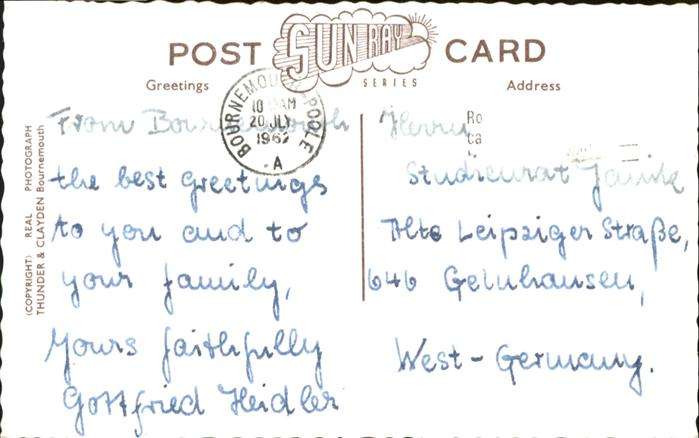 POST SUN RAY CARD
SERIES
Greetings
Address
BOURNEMOUTH-POOLE
10 AM
20 JLY
1962
A
From Bournemouth
the best greetings
to you and to
your family,
Yours faithfully
Gottfried Heidler
Herrn
Studienrat
Alte Leipziger Straße,
646 Gelnhausen,
West-Germany.
(COPYRIGHT) REAL PHOTOGRAPH
THUNDER & CLAYDEN Bournemouth